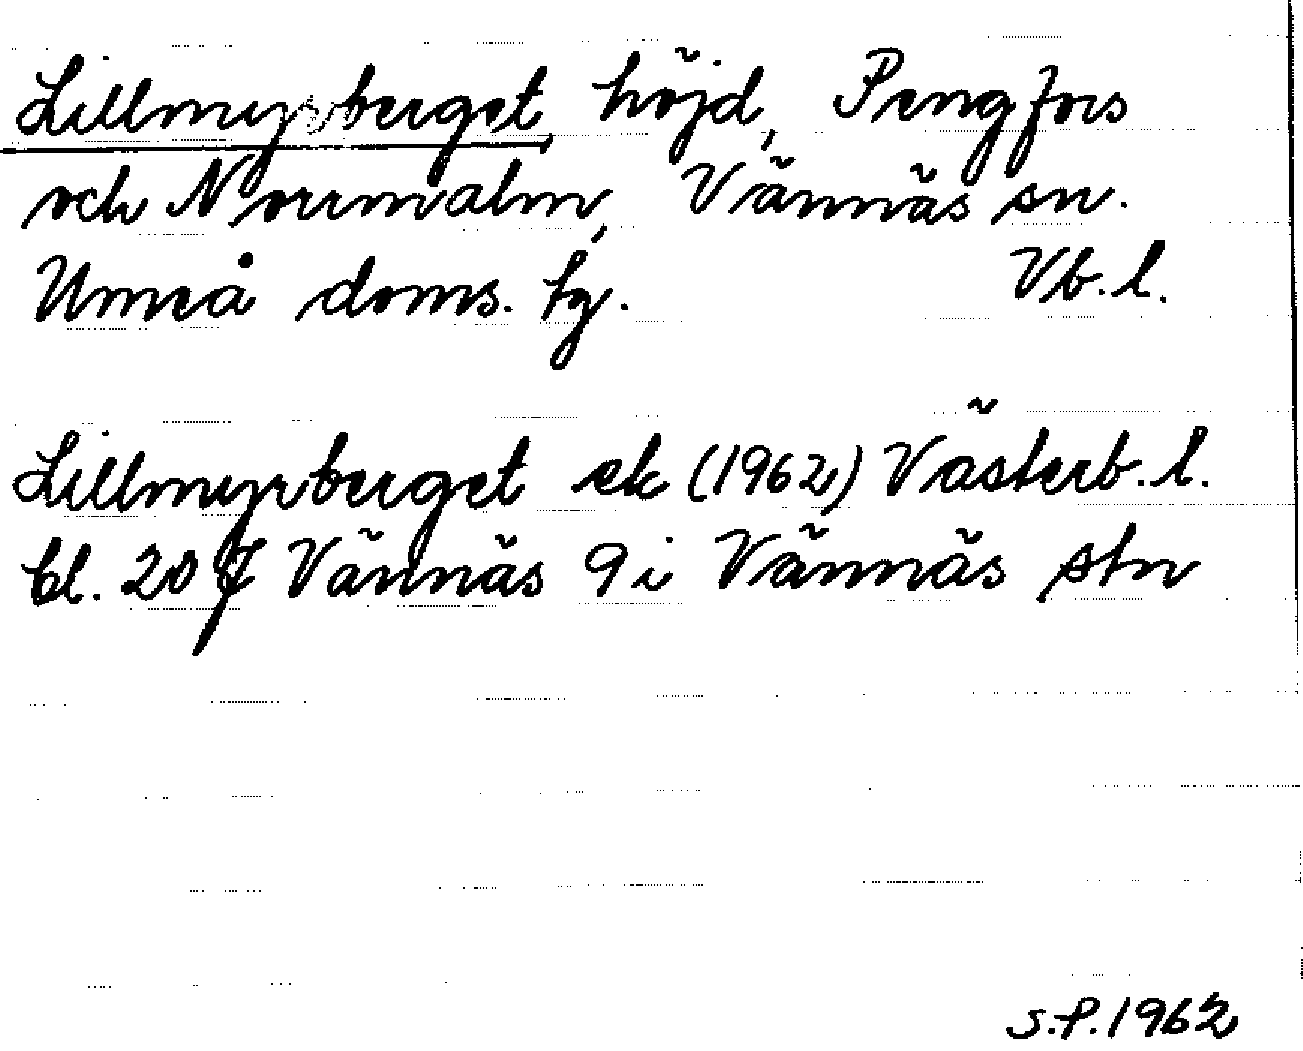 Lillmyrberget, höjd, Pengfors
och Norrmalm, Vännäs sn.
Umeå doms. tg. Vb.l.
Lillmyrberget ek (1962) Västerb.l.
bl. 207 Vännäs 9i Vännäs stn
S.P.1962